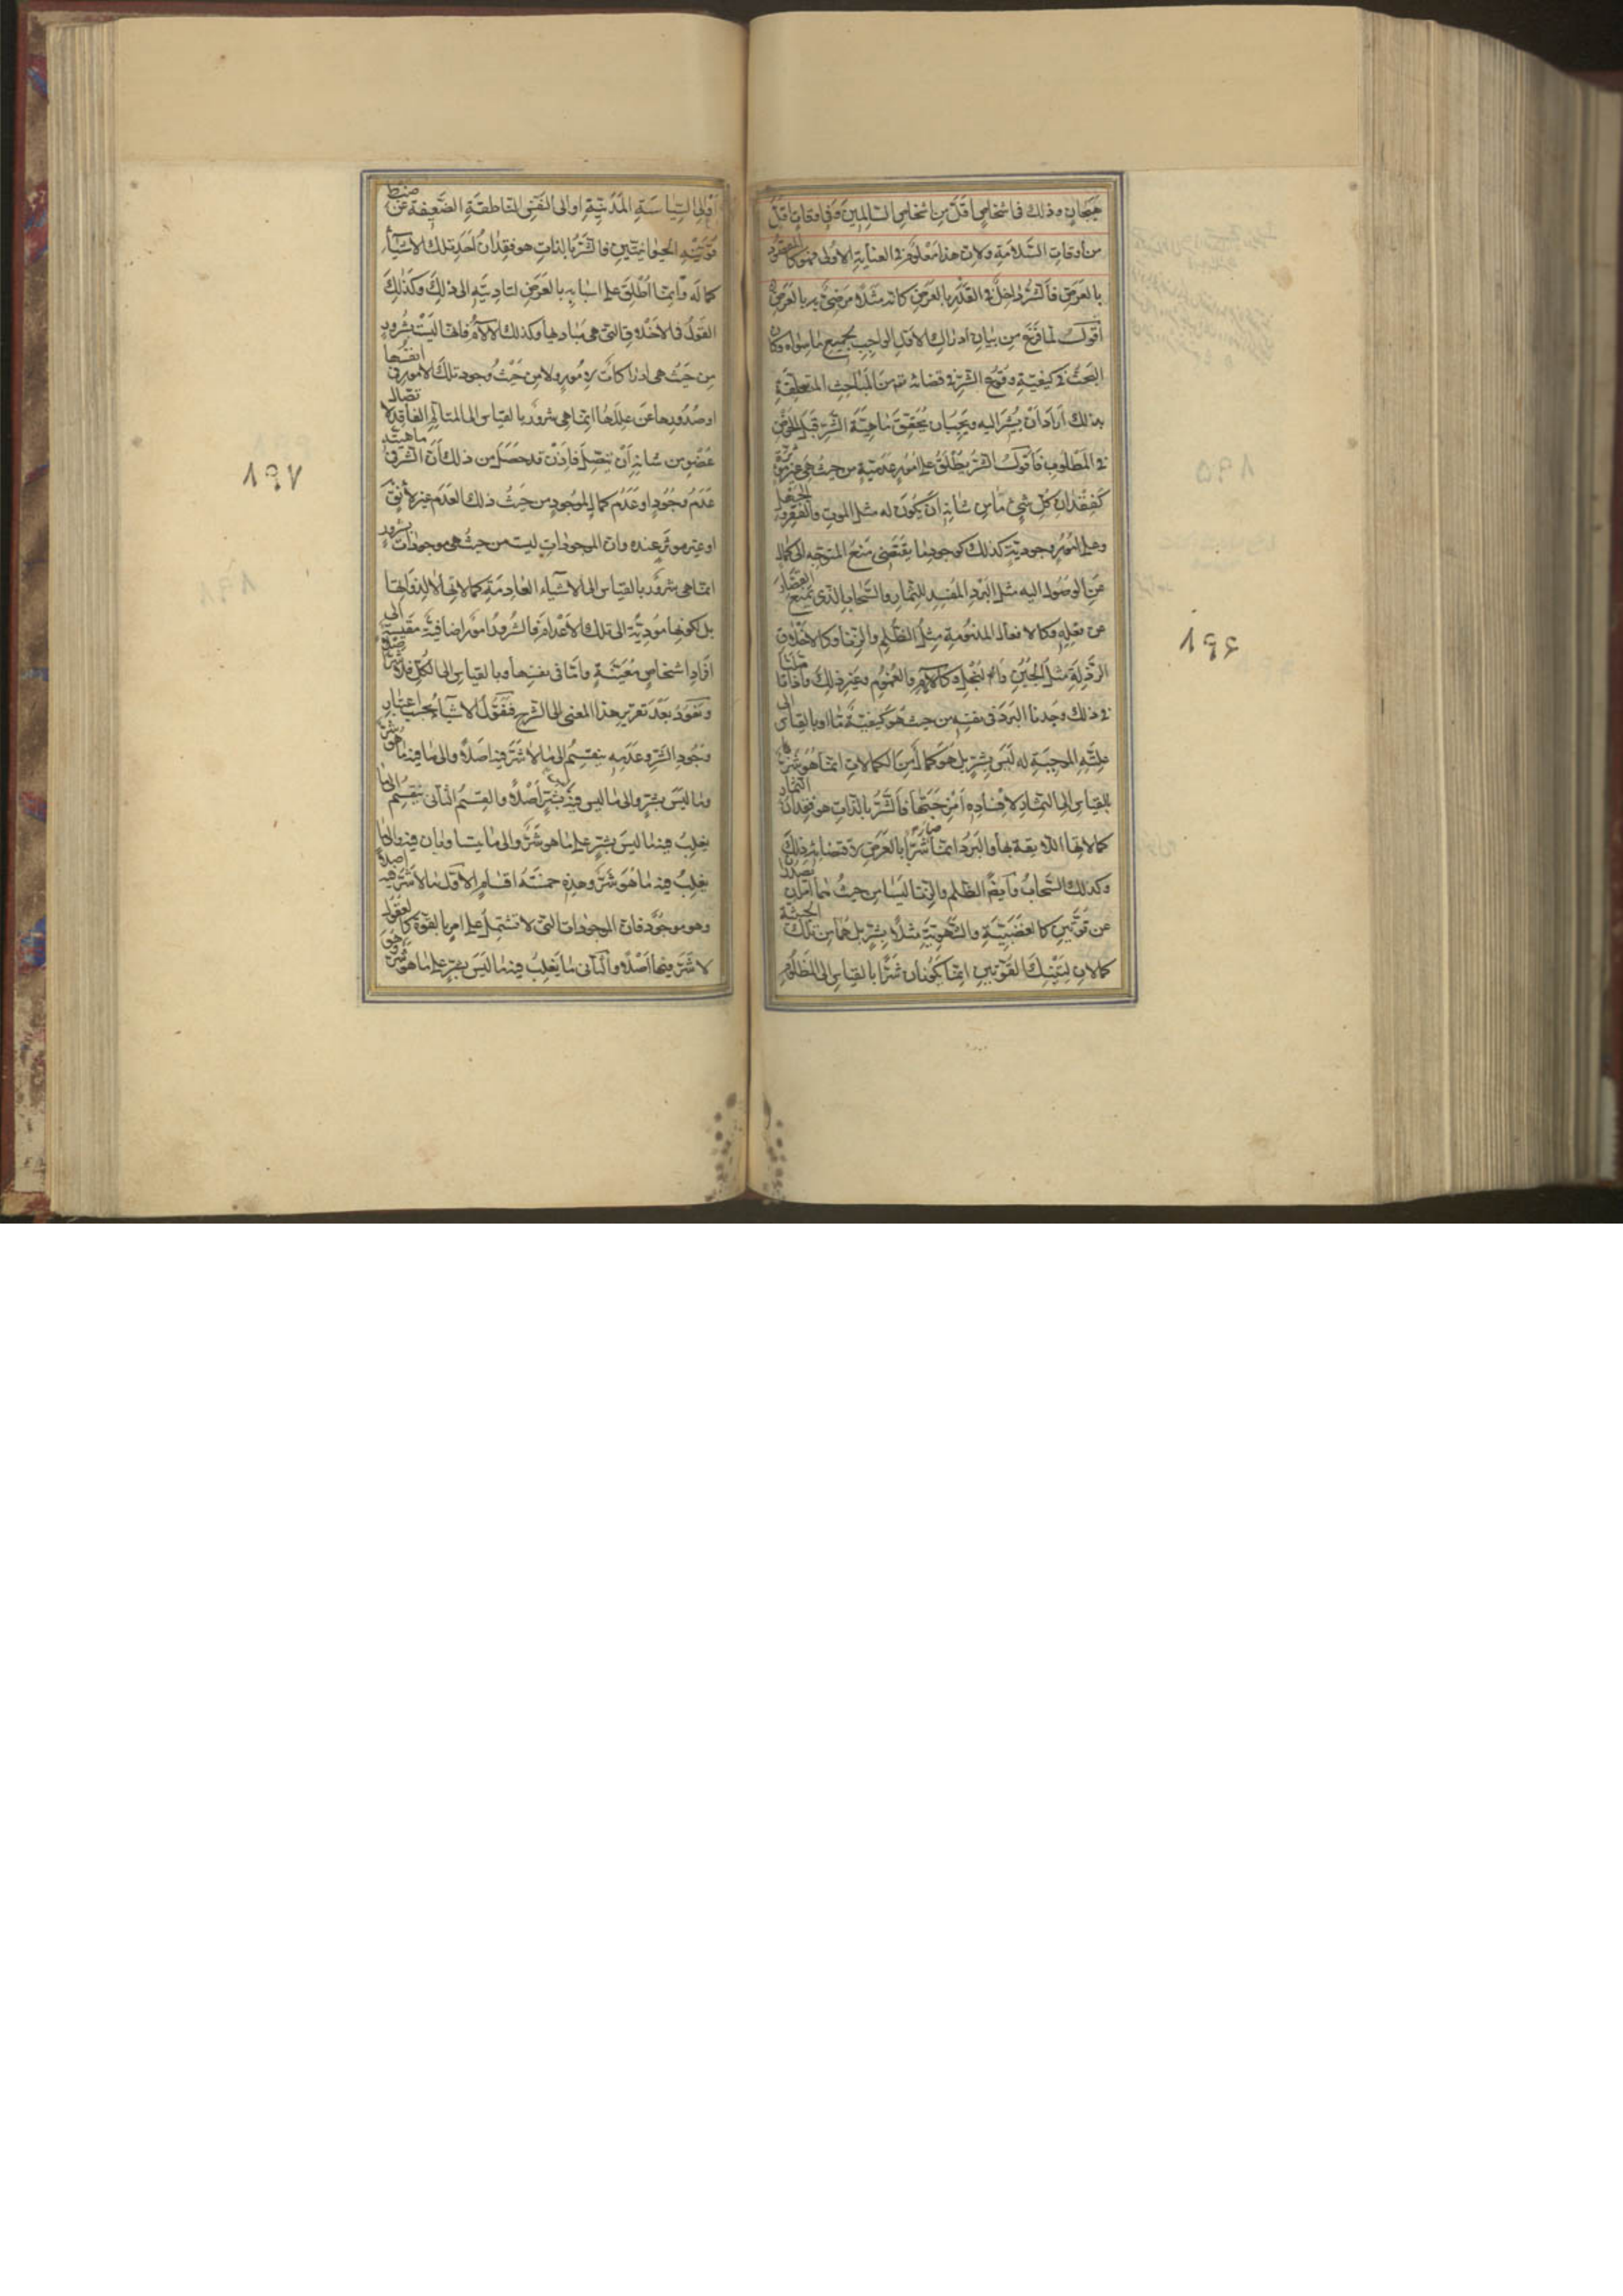 هيجان وذلك في اشخاص اقل من اشخاص السالمين وفي اوقات اقل
من أوقات السلامة ولان هذا معلوم في العناية الاولى فهو كالمقصود
بالعرض فالشر داخل في القدر بالعرض كانه مثلا مرضي به بالعرض
أقول لما فرغ من بيان ادراك الاول الواجب لجميع ما سواه وكان
البحث في كيفية وقوع الشر في قضائه من المباحث المتعلقة
بذلك أراد أن يشير اليه ويجب ان يحقق ماهية الشر قبل الخوض
في المطلوب فأقول الشر يطلق على امور عدمية من حيث هي غير مؤثرة
كفقدان كل شيء ما من شانه ان يكون له مثل الموت والفقر والجهل
وعلى امور وجودية كذلك كوجود ما يقتضي منع المتوجه الى كمال
عن الوصول اليه مثل البرد المفسد للثمار والسحاب الذي يمنع القصار
عن فعله وكالافعال المذمومة مثل الظلم والزنا وكالاخلاق
الرذيلة مثل الجبن والبخل وكالآلام والغموم وغير ذلك واذا تأملنا
في ذلك وجدنا البرد في نفسه من حيث هو كيفية ما او بالقياس الى
علته الموجبة له ليس بشر بل هو كمال من الكمالات انما هو شر
بالقياس الى الثمار لافساده امزجتها فالشر بالذات هو فقدان الثمار
كمالاتها اللايقة بها والبرد انما صار شرا بالعرض لاقتضائه ذلك
وكذلك السحاب وأيضا الظلم والزنا ليسا من حيث هما امران يصدران
عن قوتين كالغضبية والشهوية مثلا بشر بل هما من تلك الحيثية
كمالات لتينك القوتين انما يكونان شرا بالقياس الى المظلوم
أو الى السياسة المدنية او الى النفس الناطقة الضعيفة عن ضبط
قوتيه الحيوانيتين فالشر بالذات هو فقدان احد تلك الاشياء
كماله وانما اطلق على اسبابه بالعرض لتاديته الى ذلك وكذلك
القول في الاخلاق التي هي مباديها وكذلك الالام فانها ليست بشرور
من حيث هي ادراكات لامور ولا من حيث وجود تلك الامور في انفسها
او صدورها عن عللها انما هي شرور بالقياس الى المتالم الفاقد لاتصال
عضو من شانه أن يتصل فاذن قد حصل من ذلك أن الشر في ماهيته
عدم وجود او عدم كمال لموجود من حيث ذلك العدم غير لائق
او غير مؤثر عنده وان الموجودات ليست من حيث هي موجودات بشرور
انما هي شرور بالقياس الى الاشياء العادمة كمالاتها لا لذواتها
بل لكونها مؤدية الى تلك الاعدام فالشرور امور اضافية مقيسة الى
افراد اشخاص معينة واما في نفسها وبالقياس الى الكل فلا شر اصلا
ونعود بعد تقرير هذا المعنى الى الشرح فنقول الاشياء بحسب اعتبار
وجود الشر وعدمه ينقسم الى ما لا شر فيه اصلا والى ما فيه ما هو شر
وما ليس بشر والى ما ليس فيه ما ليس بشر اصلا والقسم الثاني ينقسم الى ما
يغلب فيه ما ليس بشر على ما هو شر والى ما يتساويان فيه والى ما
يغلب فيه ما هو شر وهذه خمسة اقسام الاول ما لا شر فيه اصلا
وهو موجود فان الموجودات التي لا تشتمل على امر بالقوة كالعقول
لا شر فيها أصلا والثاني ما يغلب فيه ما ليس بشر على ما هو شر
١٩٧
١٩٦
١٩٥